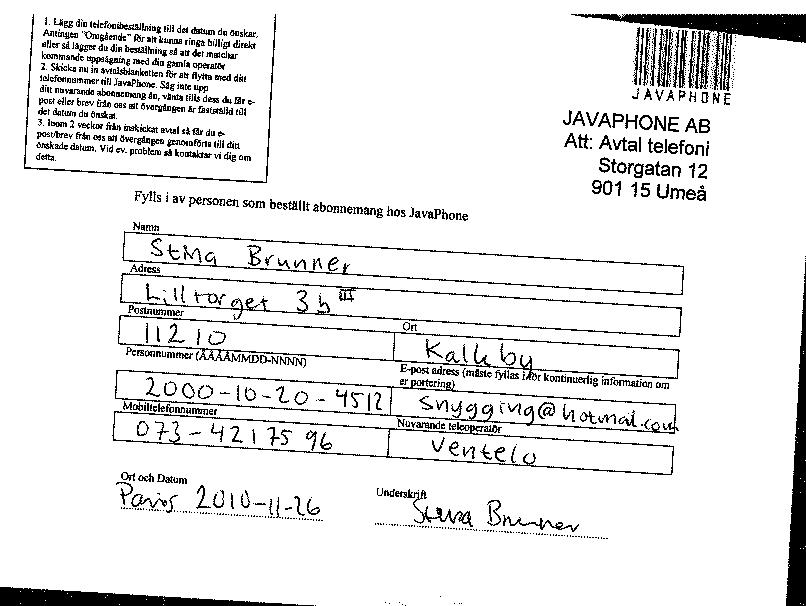 1. Lägg din telefonibeställning till det datum du önskar.
Antingen "Omgående" för att kunna ringa billigt direkt
eller så lägger du din beställning så att det matchar
kommande uppsägning med din gamla operatör
2. Skicka nu in avtalsblanketten för att flytta med ditt
telefonnummer till JavaPhone. Säg inte upp
ditt nuvarande abonnemang än, vänta tills dess du får e-
post eller brev från oss att övergången är fastställd till
det datum du önskat.
3. Inom 2 veckor från inskickat avtal så får du e-
post/brev från oss att övergången genomförts till ditt
önskade datum. Vid ev. problem så kontaktar vi dig om
detta.
JAVAPHONE
JAVAPHONE AB
Att: Avtal telefoni
Storgatan 12
901 15 Umeå
Fylls i av personen som beställt abonnemang hos JavaPhone
Namn
Stina Brunner
Adress
Lilltorget 3b III
Postnummer
11210
Ort
Kalkby
Personnummer (ÅÅÅÅMMDD-NNNN)
2000-10-20-4512
E-post adress (måste fyllas i för kontinuerlig information om
er portering)
snygging@hotmail.com
Mobiltelefonnummer
073-4217596
Nuvarande teleoperatör
Ventelo
Ort och Datum
Paris 2010-11-26
Underskrift
Stina Brunner